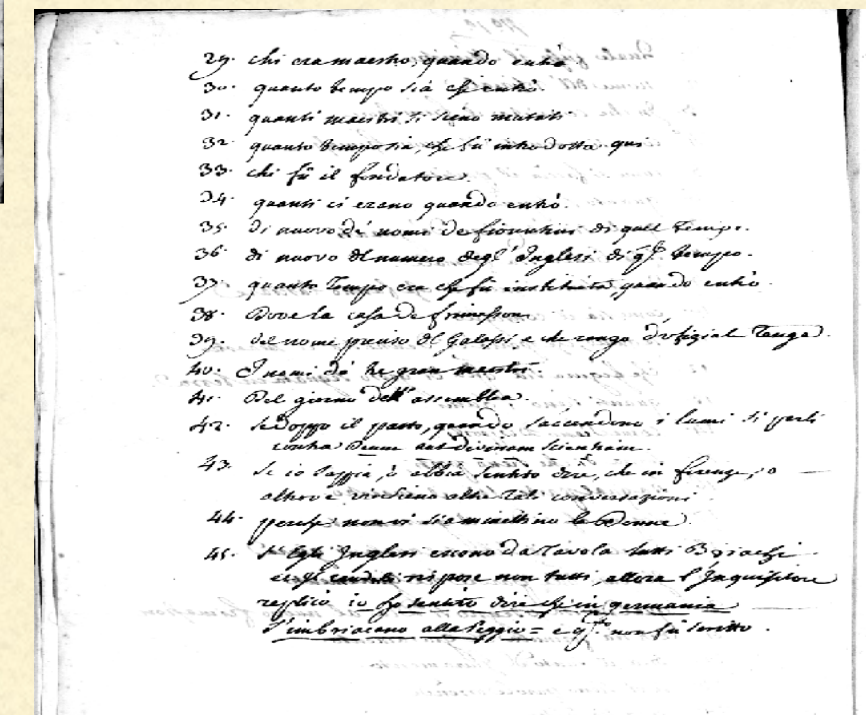 29. chi era maestro, quando entrò.
30. quanto tempo sia che entrò.
31. quanti maestri si sieno mutati
32. quanto tempo sia, che fù introdotta qui
33. chi fù il fondatore.
34. quanti ci erano quando entrò.
35. di nuovo de' nomi de fiorentini di quel Tempo.
36. di nuovo del numero degl' Inglesi di qto. tempo.
37. quanto Tempo era che fù instituita, quando entrò.
38. Dove la casa de
39. del nome preciso del e che rango d'ufizial Tenga.
40. I nomi de' tre gran maestri.
41. Del giorno dell' assemblea.
42. se doppo il pasto, quando s'accendono i lumi si parli
contra Deum aut divinam scientiam.
43. se io sappia, ò abbia sentito dire, che in firenze, o
altrove vi sieno altre Tali conversazioni
44. perche non vi si amettino le Donne.
45. Se gli Inglesi escono da Tavola tutti Briachi
risposi non tutti, allora l'Inquisitore
replicò io ho sentito dire che in germania
s'imbriacano alla peggio = e qto. non fù scritto.